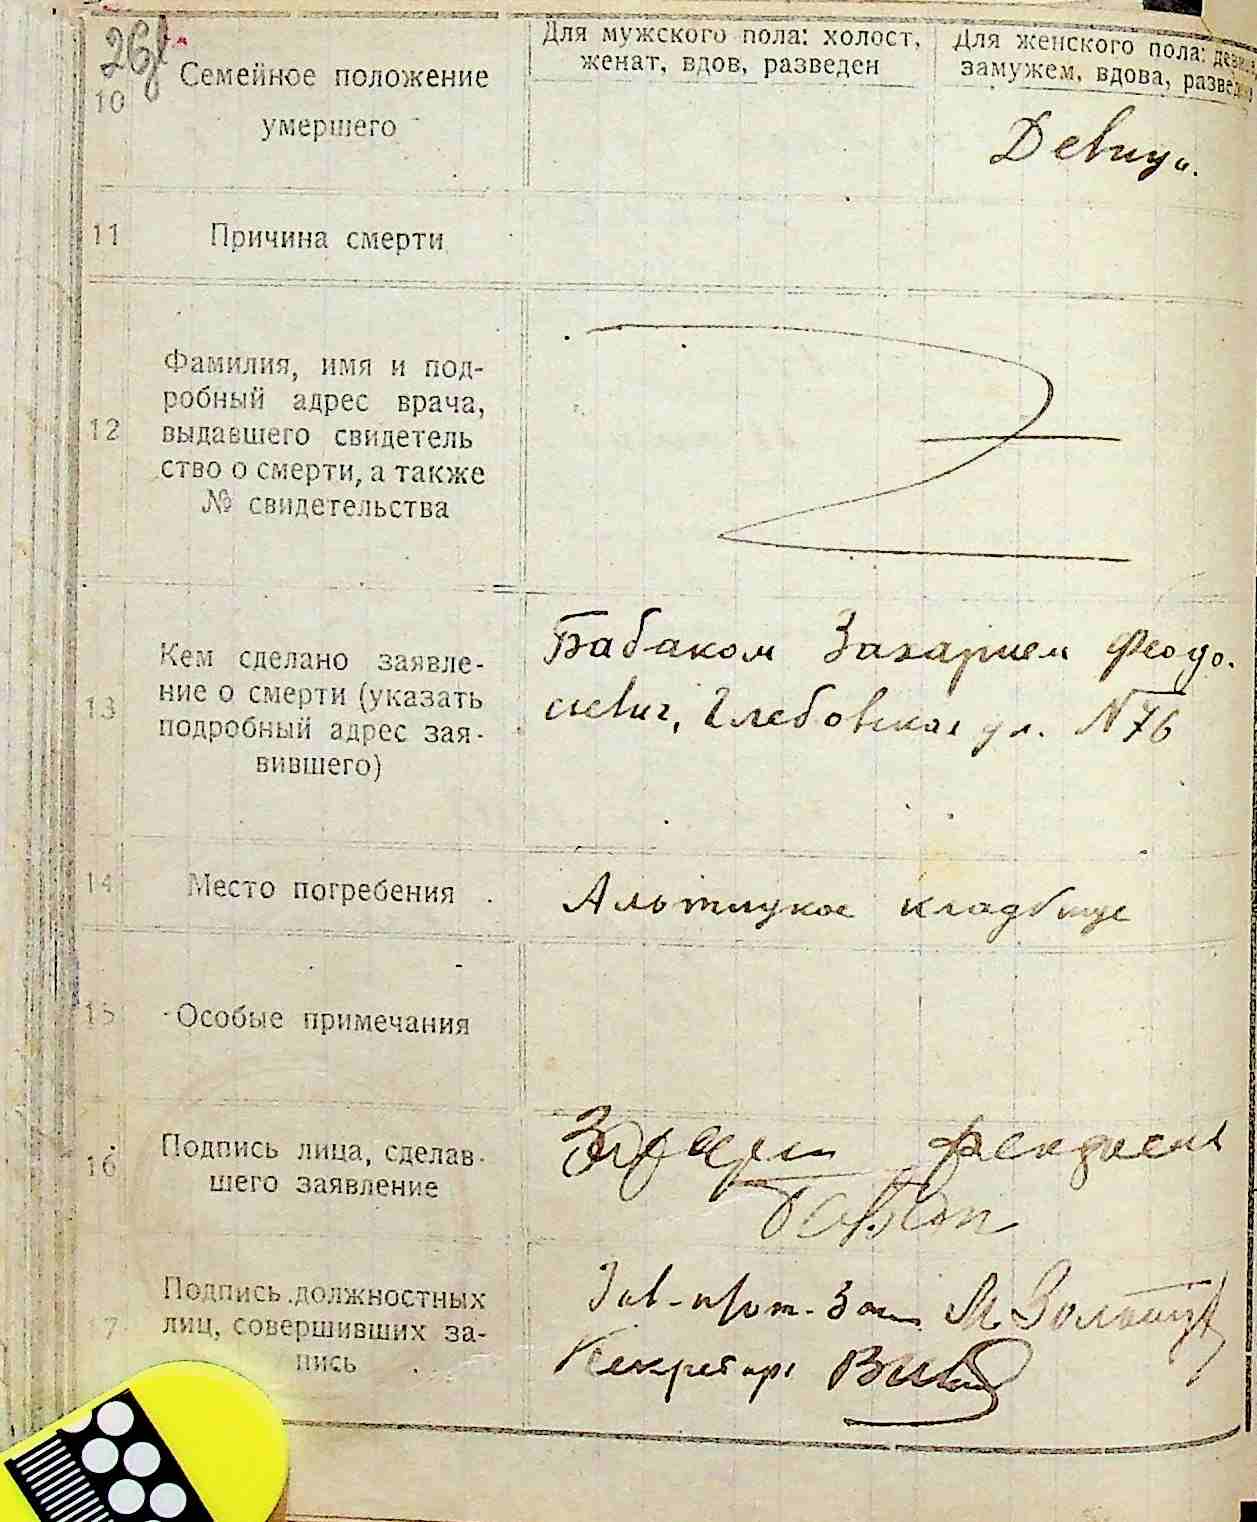 26
10
Семейное положение
умершего
Для мужского пола: холост,
женат, вдов, разведен
Для женского пола:
замужем, вдова,
Девица.
11
Причина смерти
12
Фамилия, имя и под-
робный адрес врача,
выдавшего свидетель
ство о смерти, а также
№ свидетельства
13
Кем сделано заявле-
ние о смерти (указать
подробный адрес зая-
вившего)
Бабаком Захарием Феодо-
сиевич, Глебовская ул. N 76
14
Место погребения
кладбище
15
Особые примечания
16
Подпись лица, сделав-
шего заявление
7
Подпись должностных
лиц, совершивших за-
пись
Зав. М.
Секретарь